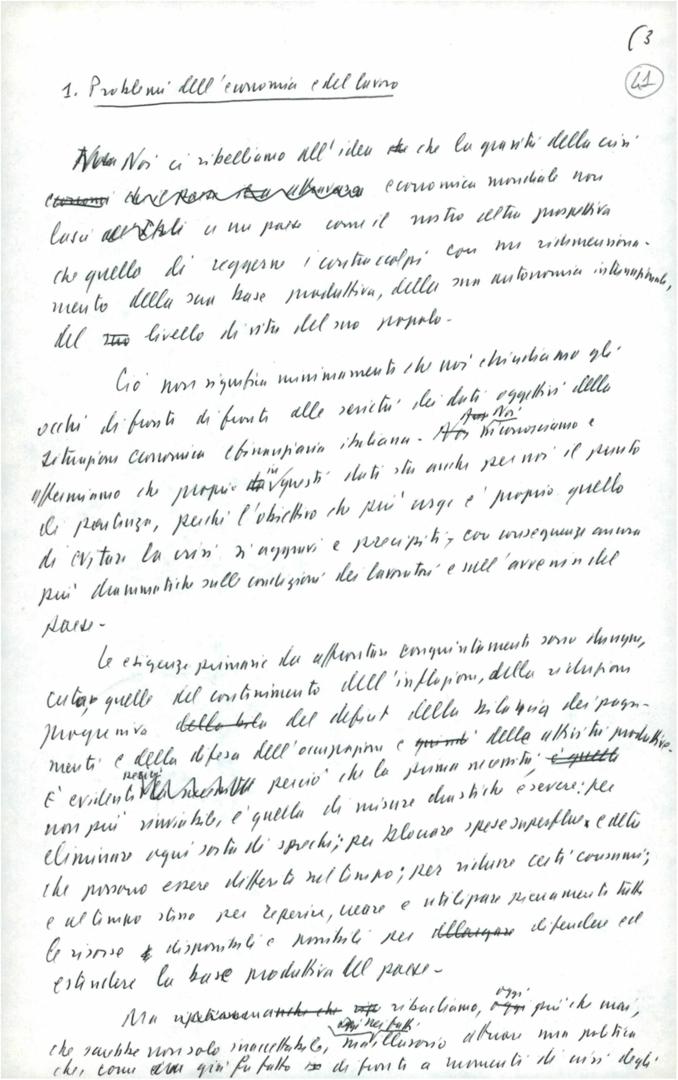 (3
41
1. Problemi dell'economia e del lavoro
Noi ci ribelliamo all'idea che la gravità della crisi
economica mondiale non
lasci a un paese come il nostro altra prospettiva
che quello di reggerne i contraccolpi con un ridimensiona-
mento della sua base produttiva, della sua autonomia internazionale,
del suo livello di vita del suo popolo.
Ciò non significa minimamente che noi chiudiamo gli
occhi di fronte di fronte alle serietà dei dati oggettivi della
situazione economica e finanziaria italiana. Noi riconosciamo e
affermiamo che proprio in questi dati sta anche per noi il punto
di partenza, perché l'obiettivo che più urge è proprio quello
di evitare la crisi si aggravi e precipiti, con conseguenze ancora
più drammatiche sulle condizioni dei lavoratori e sull'avvenire del
paese.
Le esigenze primarie da affrontare congiuntamente sono dunque,
certo, quelle del contenimento dell'inflazione, della riduzione
progressiva della bila del deficit della bilancia dei paga-
menti e della difesa dell'occupazione e quindi della attività produttive.
È evidente perciò che la prima necessità, è quella
non più rinviabile, è quella di misure drastiche e severe: per
eliminare ogni sorta di sprechi; per bloccare spese superflue e altre
che possono essere differite nel tempo; per ridurre certi consumi;
e al tempo stesso per reperire, creare e utilizzare pienamente tutte
le risorse disponibili e possibili per allargare difendere ed
estendere la base produttiva del paese.
Ma ribadiamo, oggi più che mai,
che sarebbe non solo inaccettabile, ma illusorio attuare una politica
che, come già fu fatto di fronte a momenti di crisi degli